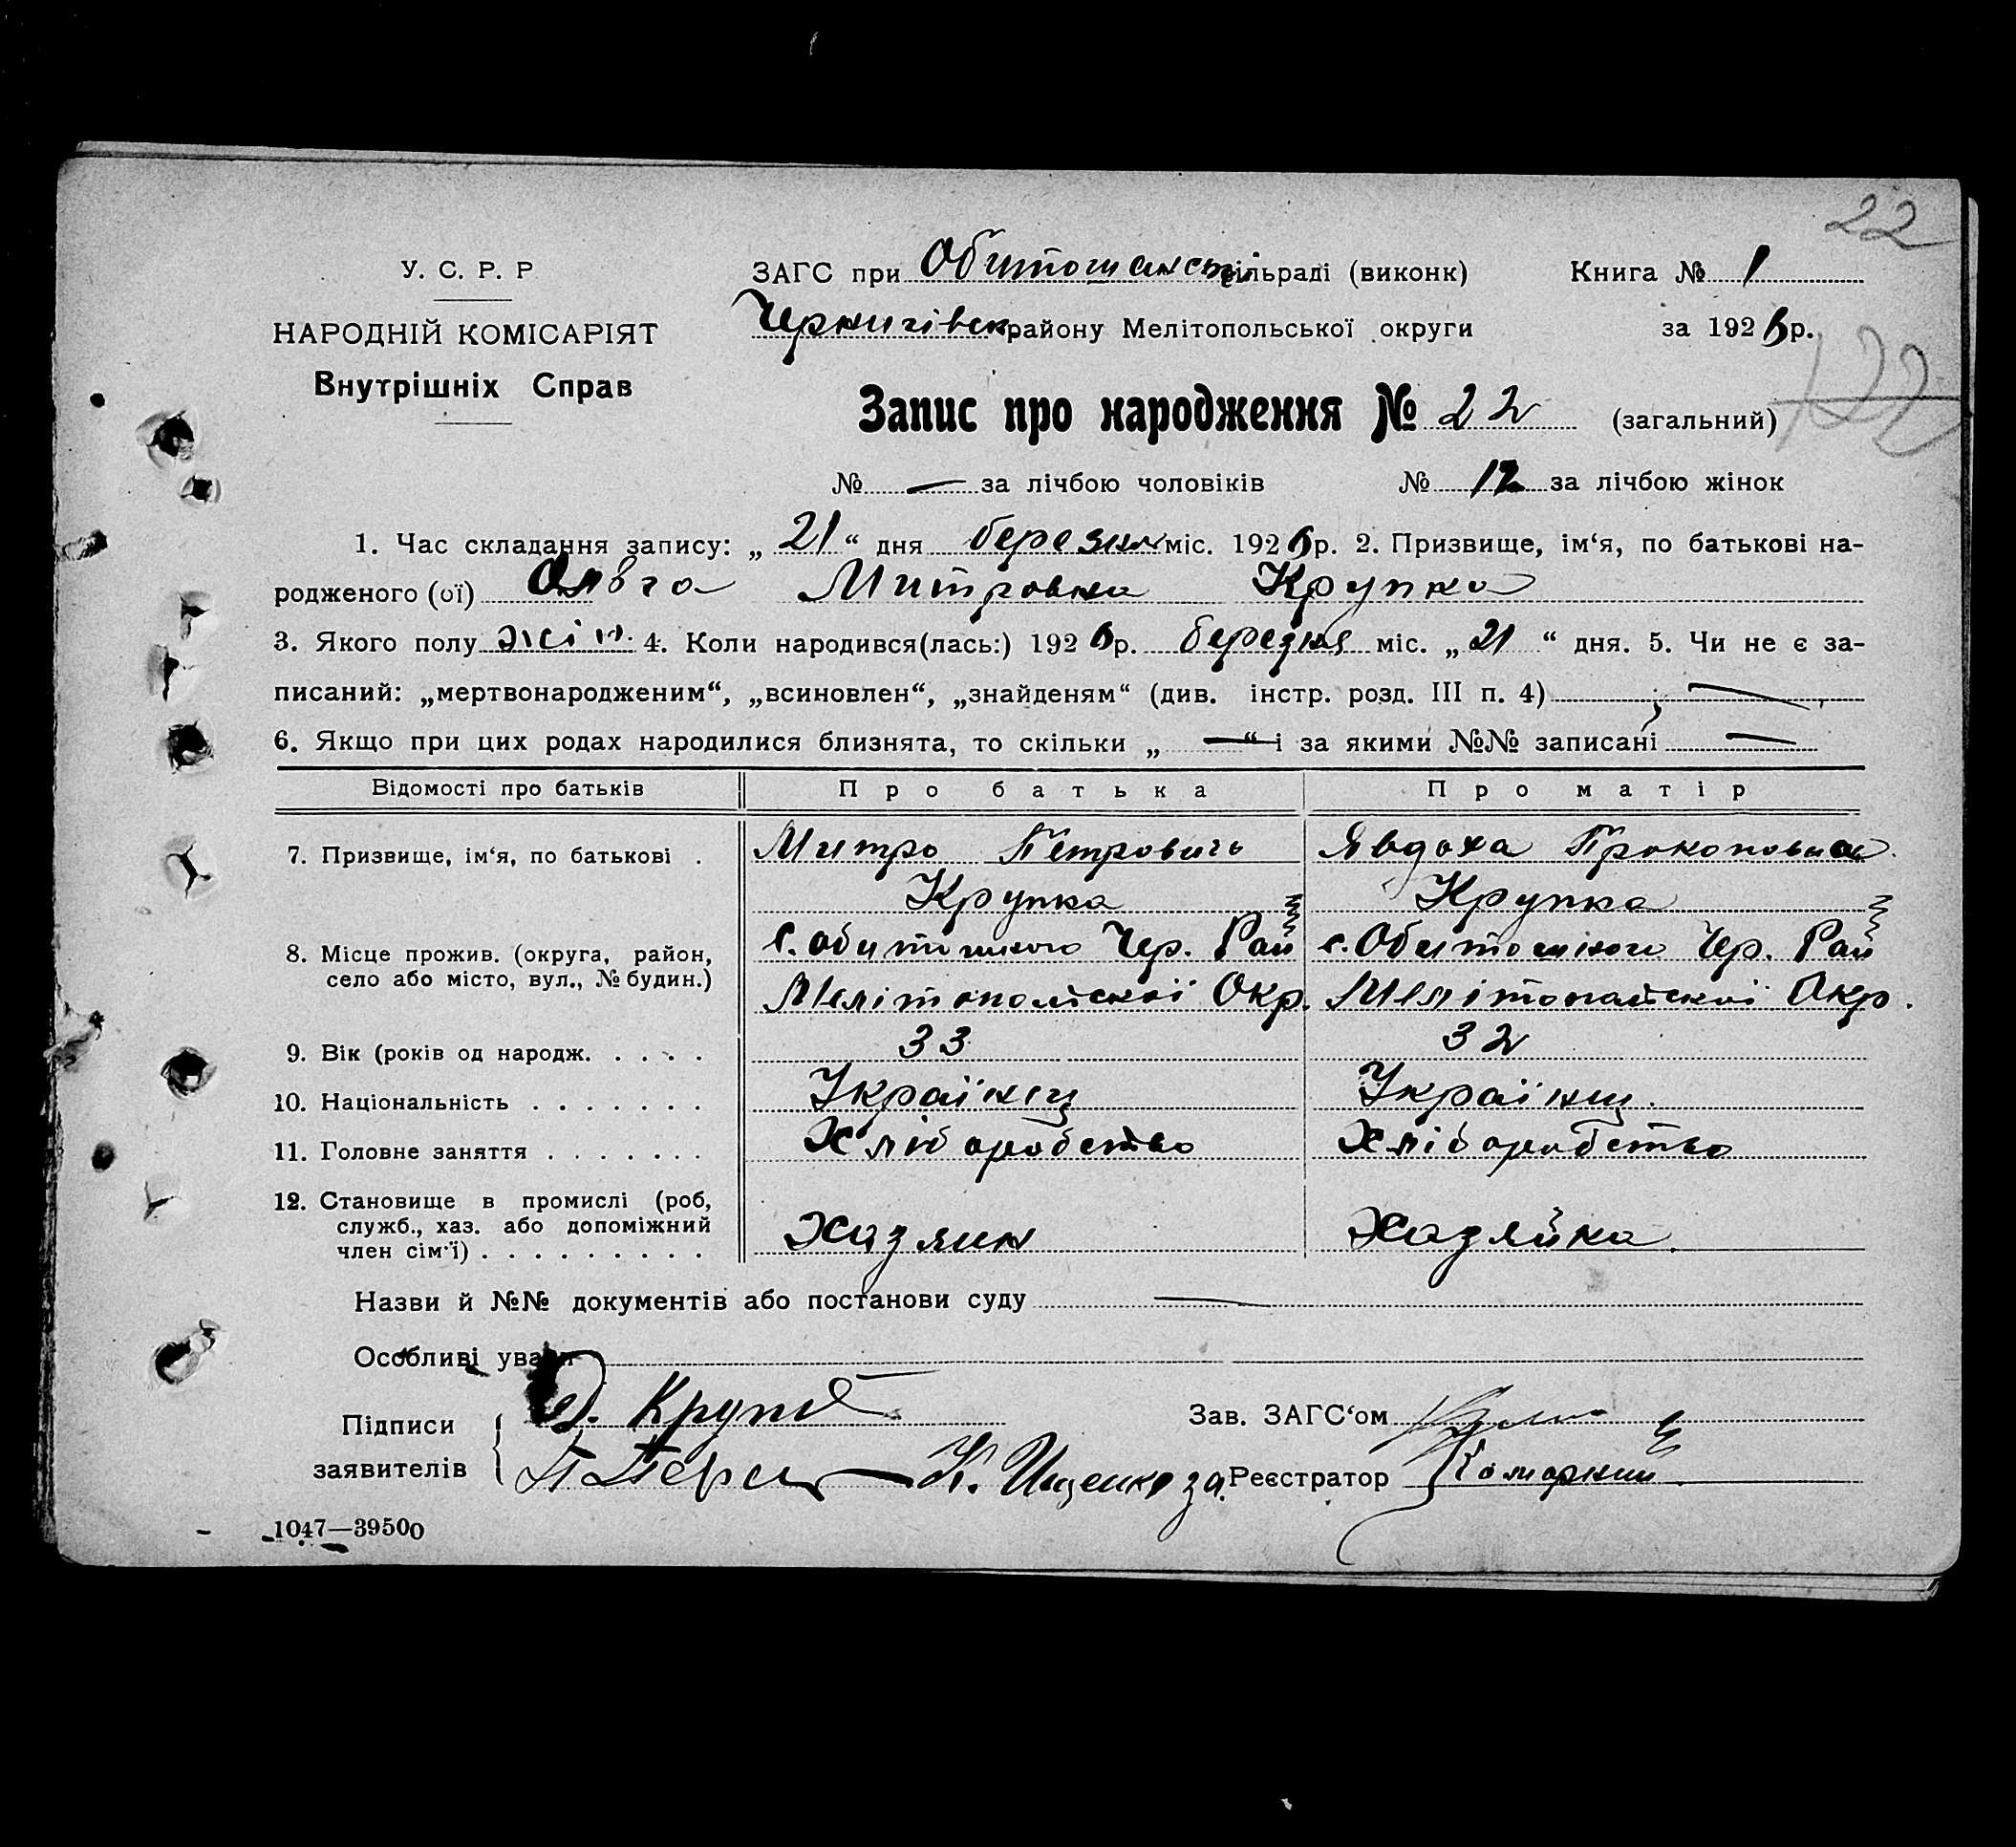 22
У. С. Р. Р
НАРОДНІЙ КОМІСАРІЯТ
Внутрішніх Справ
ЗАГС при Обитошанській сільраді (виконк) Книга № 1
Чернигівськ району Мелітопольської округи за 1926 р.
122
Запис про народження № 22 (загальний)
№ — за лічбою чоловіків № 12 за лічбою жінок
1. Час складання запису: „ 21 “ дня березня міс. 1926 р. 2. Призвище, ім‘я, по батькові на-
родженого (ої) Олвга Митровна Крупка
3. Якого полу жін. 4. Коли народився(лась:) 1926 р. березня міс. „ 21 “ дня. 5. Чи не є за-
писаний: „мертвонародженим“, „всиновлен“, „знайденям“ (див. інстр. розд. III п. 4) —
6. Якщо при цих родах народилися близнята, то скільки „ — “ і за якими №№ записані —
Відомості про батьків Про батька Про матір
7. Призвище, ім‘я, по батькові . Митро Петровичь Явдоха Прокоповна
Крупка Крупка
8. Місце прожив. (округа, район, село або місто, вул., № будин.) с. Чер. Рай с. Чер. Рай
Окр. Окр.
9. Вік (років од народж. . . . . 33 32
10. Національність . . . . . . . Українец Українц.
11. Головне заняття . . . . . . . Хліборобство Хліборобство
12. Становище в промислі (роб, служб., хаз. або допоміжний член сім‘ї) . . . . . . . . . Хазяин Хазяйка
Назви й №№ документів або постанови суду —
Особливі уваги
Підписи Д. Крупка Зав. ЗАГС‘ом
заявителів К. Ищенко за Реєстратор
1047—39500